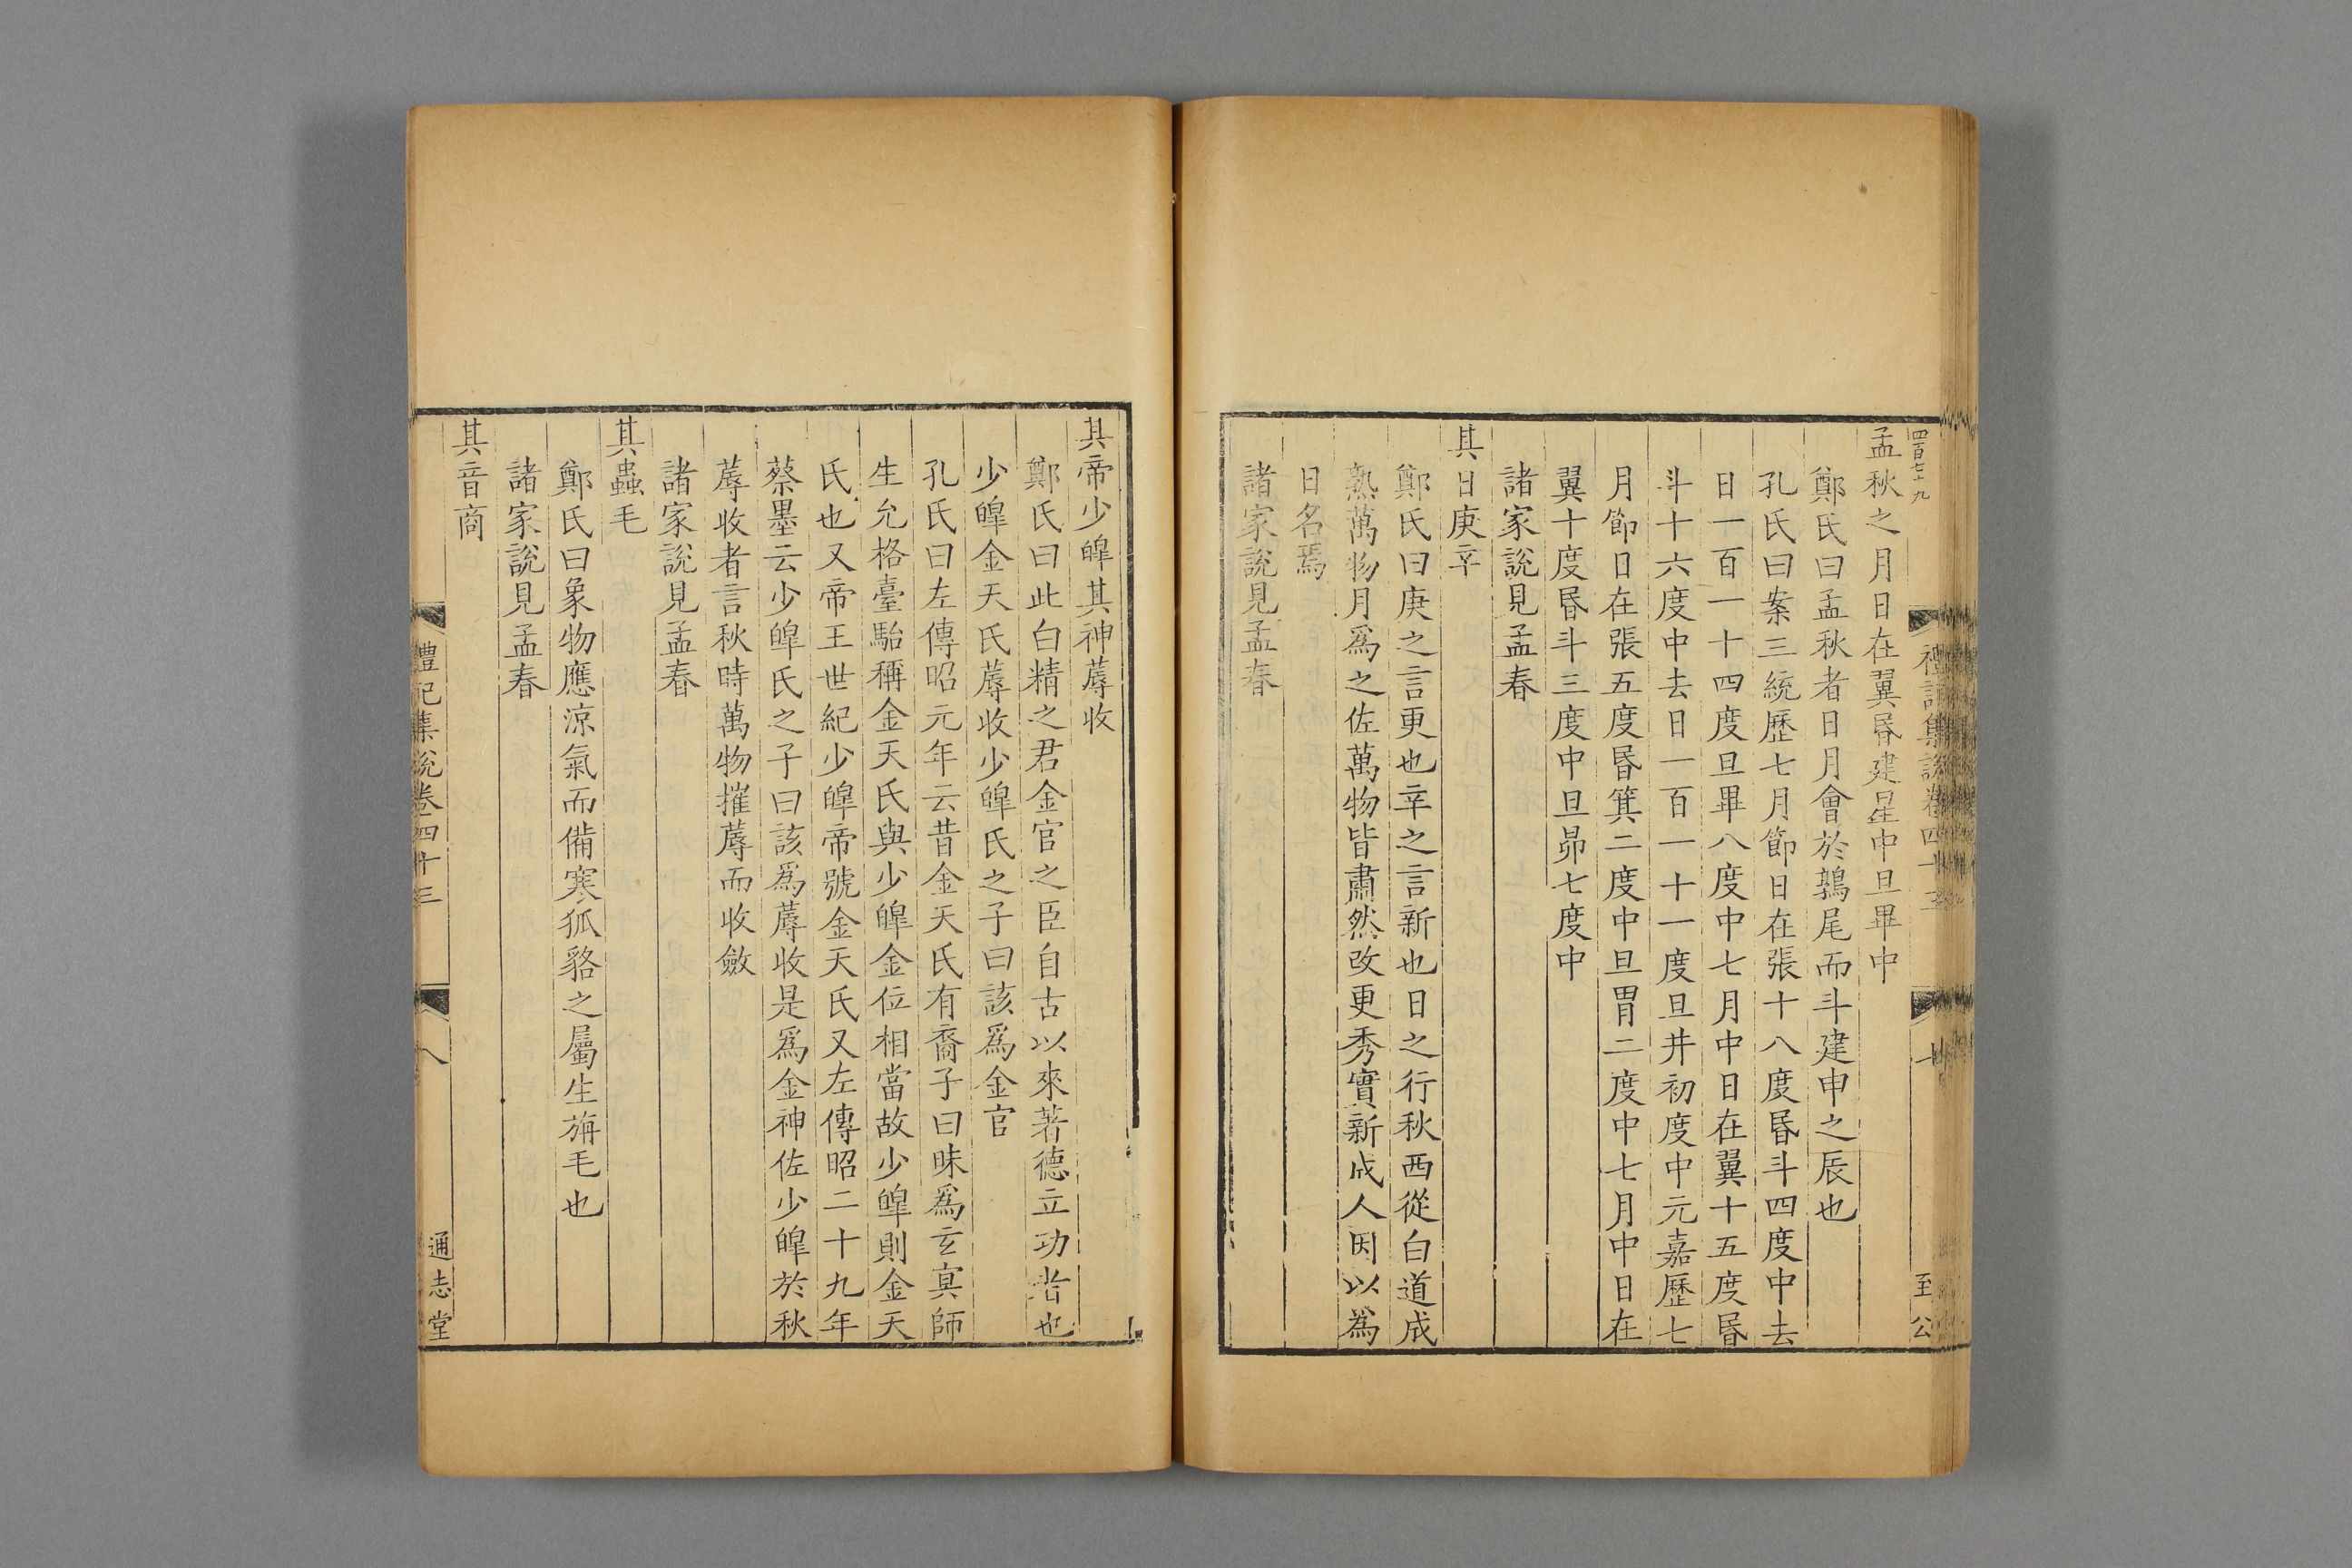 四百七十九
孟秋之月日在翼昬建星中旦畢中
鄭氏曰孟秋者日月會於鶉尾而斗建申之辰也
孔氏曰案三統歷七月節日在張十八度昬斗四度中去
日一百一十四度旦畢八度中七月中日在翼十五度昬
斗十六度中去日一百一十一度旦井初度中元嘉歷七
月節日在張五度昬箕二度中旦胃二度中七月中日在
翼十度昬斗三度中旦昴七度中
諸家說見孟春
其日庚辛
鄭氏曰庚之言更也辛之言新也日之行秋西從白道成
熟萬物月爲之佐萬物皆肅然改更秀實新成人因以爲
日名焉
諸家說見孟春
禮記集說卷四十三
至公
其帝少皥其神蓐收
鄭氏曰此白精之君金官之臣自古以來著德立功者也
少皥金天氏蓐收少皥氏之子曰該爲金官
孔氏曰左傳昭元年云昔金天氏有裔子曰昧爲玄冥師
生允格臺駘稱金天氏與少皥金位相當故少皥則金天
氏也又帝王世紀少皥帝號金天氏又左傳昭二十九年
蔡墨云少皥氏之子曰該爲蓐收是爲金神佐少皥於秋
蓐收者言秋時萬物摧蓐而收斂
諸家說見孟春
其蟲毛
鄭氏曰象物應涼氣而備寒狐貉之屬生旃毛也
諸家說見孟春
其音商
禮記集說卷四十三
八
通志堂